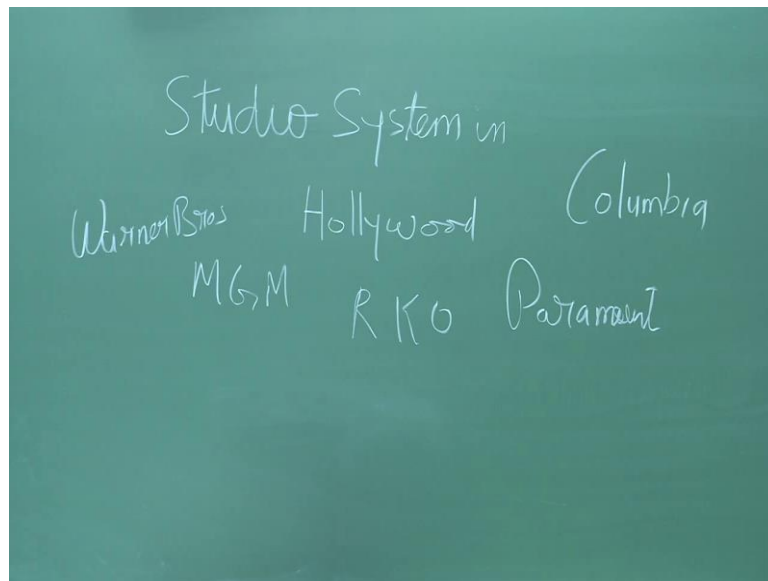 Studio System in
Warner Bros Hollywood Columbia
MGM RKO Paramount